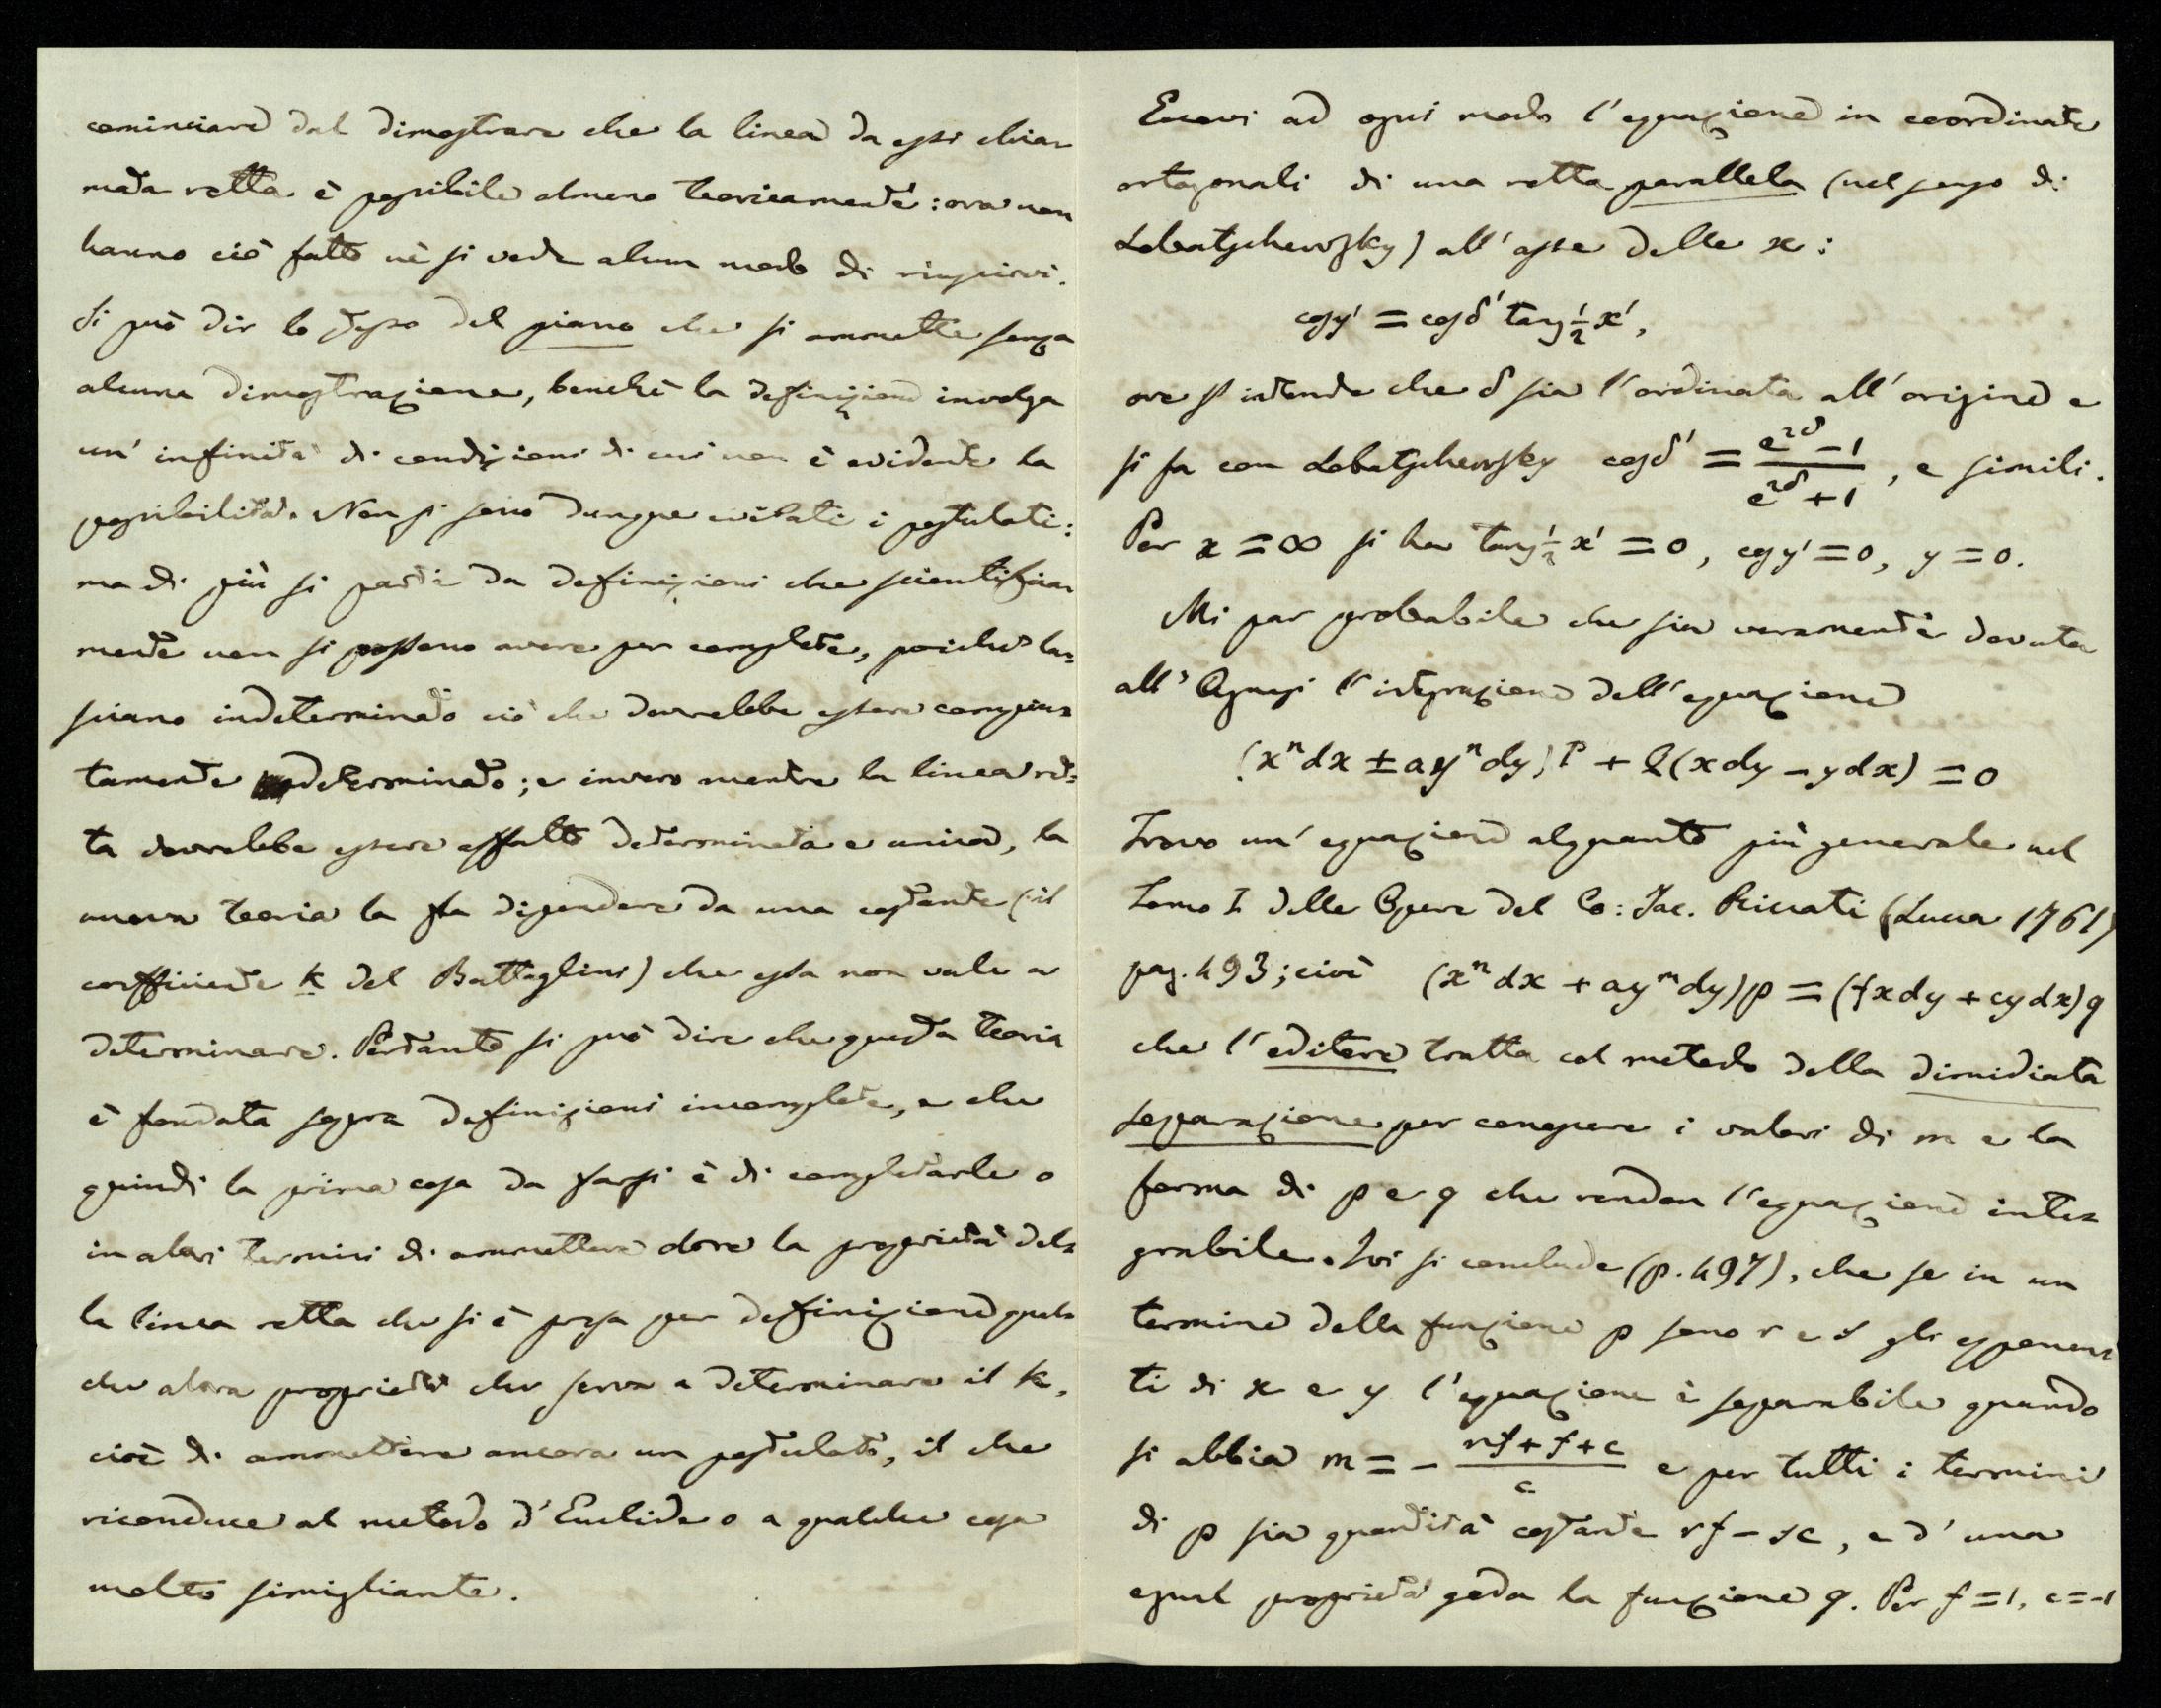 cominciare dal dimostrare che la linea da essi chia-
mata retta è possibile almeno teoricamente: ora non
hanno ciò fatto nè si vede alcun modo di riuscirvi.
Si può dir lo stesso del piano che si ammette senza
alcuna dimostrazione, benchè la definizione involga
un' infinità di condizioni di cui non è evidente la
possibilità. Non si sono dunque evitati i postulati:
ma di più si parte da definizioni che scientifica-
mente non si possono avere per complete, poichè la-
sciano indeterminato ciò che dovrebbe essere compiu-
tamente determinato; e invero mentre la linea ret-
ta dovrebbe essere affatto determinata e unica, la
nuova teoria la fa dipendere da una costante (il
coefficiente k del Battaglini) che essa non vale a
determinare. Pertanto si può dire che questa teoria
è fondata sopra definizioni incomplete, e che
quindi la prima cosa da farsi è di completarle o
in altri termini di ammettere oltre la proprietà del-
la linea retta che si è presa per definizione qual-
che altra proprietà che serva a determinare il k,
cioè di ammettere ancora un postulato, il che
riconduce al metodo d'Euclide o a qualche cosa
molto simigliante.
Eccovi ad ogni modo l'equazione in coordinate
ortogonali di una retta parallela (nel senso di
Lobatschewsky) all'asse delle x:
cos y' = cos δ' tang ½ x',
ove s'intende che δ sia l'ordinata all'origine e
si fa con Lobatschewsky cos δ' = (e^{2δ} − 1)/(e^{2δ} + 1), e simili.
Per x = ∞ si ha tang ½ x' = 0, cos y' = 0, y = 0.
Mi par probabile che sia veramente dovuta
all'Agnesi l'integrazione dell'equazione
(xⁿdx ± ayⁿdy) P + Q (xdy − ydx) = 0
Trovo un' equazione alquanto più generale nel
Tomo I delle Opere del Co: Jac. Riccati (Lucca 1761)
pag. 493; cioè (xⁿdx + ayᵐdy)p = (fxdy + cydx)q
che l'editore tratta col metodo della dimidiata
separazione per conoscere i valori di m e la
forma di p e q che rendon l'equazione inte-
grabile. Ivi si conclude (p. 497), che se in un
termine della funzione p sono r e s gli esponen-
ti di x e y l'equazione è separabile quando
si abbia m = − (nf + f + c)/c e per tutti i termini
di p sia quantità costante rf − sc, e d'una
egual proprietà goda la funzione q. Per f = 1, c = −1